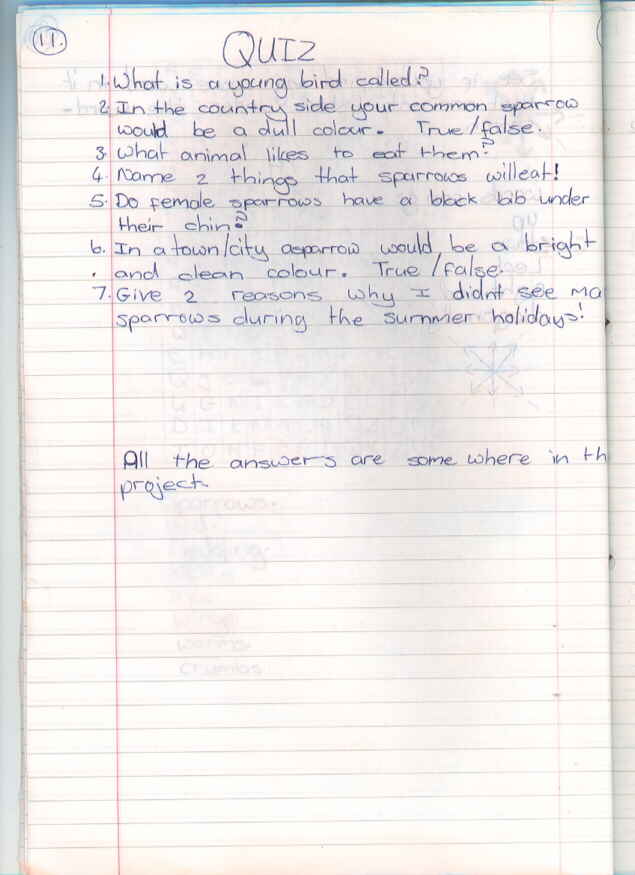 11.
QUIZ
1. What is a young bird called?
2. In the country side your common sparrow
would be a dull colour. True/false.
3. What animal likes to eat them?
4. Name 2 things that sparrows will eat!
5. Do female sparrows have a black bib under
their chin?
6. In a town/city a sparrow would be a bright
and clean colour. True/false.
7. Give 2 reasons why I didnt see
sparrows during the summer holidays!
All the answers are some where in
project.
worms.
crumbs